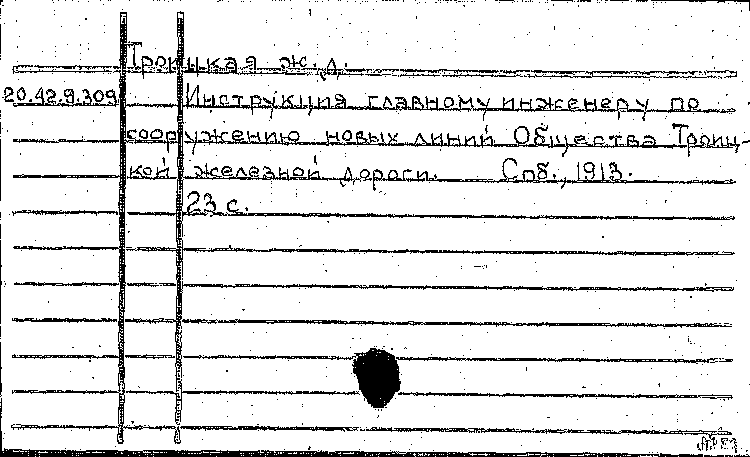 Троицкая ж.д.
20.42.9.309 Инструкция главному инженеру по
сооружению новых линий Общества Троиц-
кой железной дороги. Спб., 1913.
23 с.